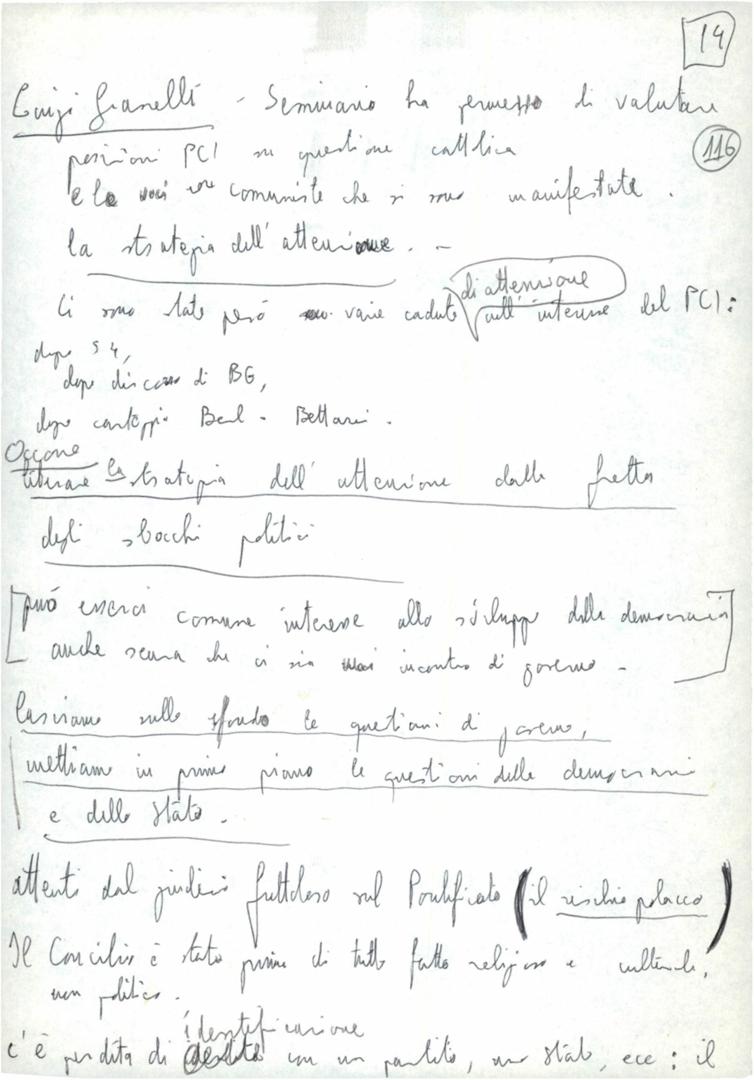 14
Luigi Granelli - Seminario ha permesso di valutare
116
posizioni PCI su questione cattolica
e le voci non comuniste che si sono manifestate.
la strategia dell'attenzione. -
di attenzione
Ci sono state però varie cadute all'interno del PCI:
dopo 54,
dopo discorso di BG,
dopo carteggio Berl - Bettazzi.
Occorre
liberare la strategia dell'attenzione dalla fretta
degli sbocchi politici
[può esserci comune interesse allo sviluppo della democrazia
anche senza che ci sia incontro di governo -]
lasciamo sullo sfondo le questioni di governo,
mettiamo in primo piano le questioni della democrazia
e dello Stato.
attenti dal giudizio frettoloso sul Pontificato (il rischio polacco)
Il Concilio è stato prima di tutto fatto religioso e culturale,
non politico.
identificazione
c'è perdita di con un partito, uno Stato, ecc: il